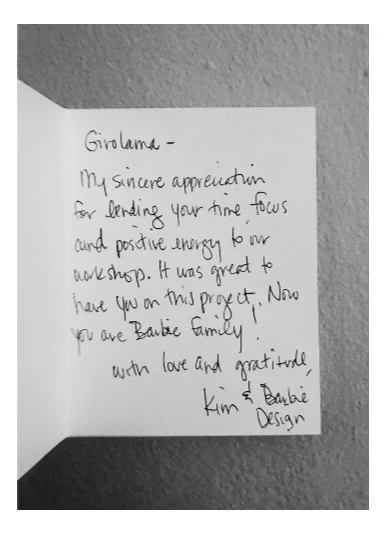 Girolama -
My sincere appreciation
for lending your time, focus
and positive energy to our
workshop. It was great to
have you on this project! Now
you are Barbie family!
with love and gratitude,
Kim & Barbie
Design